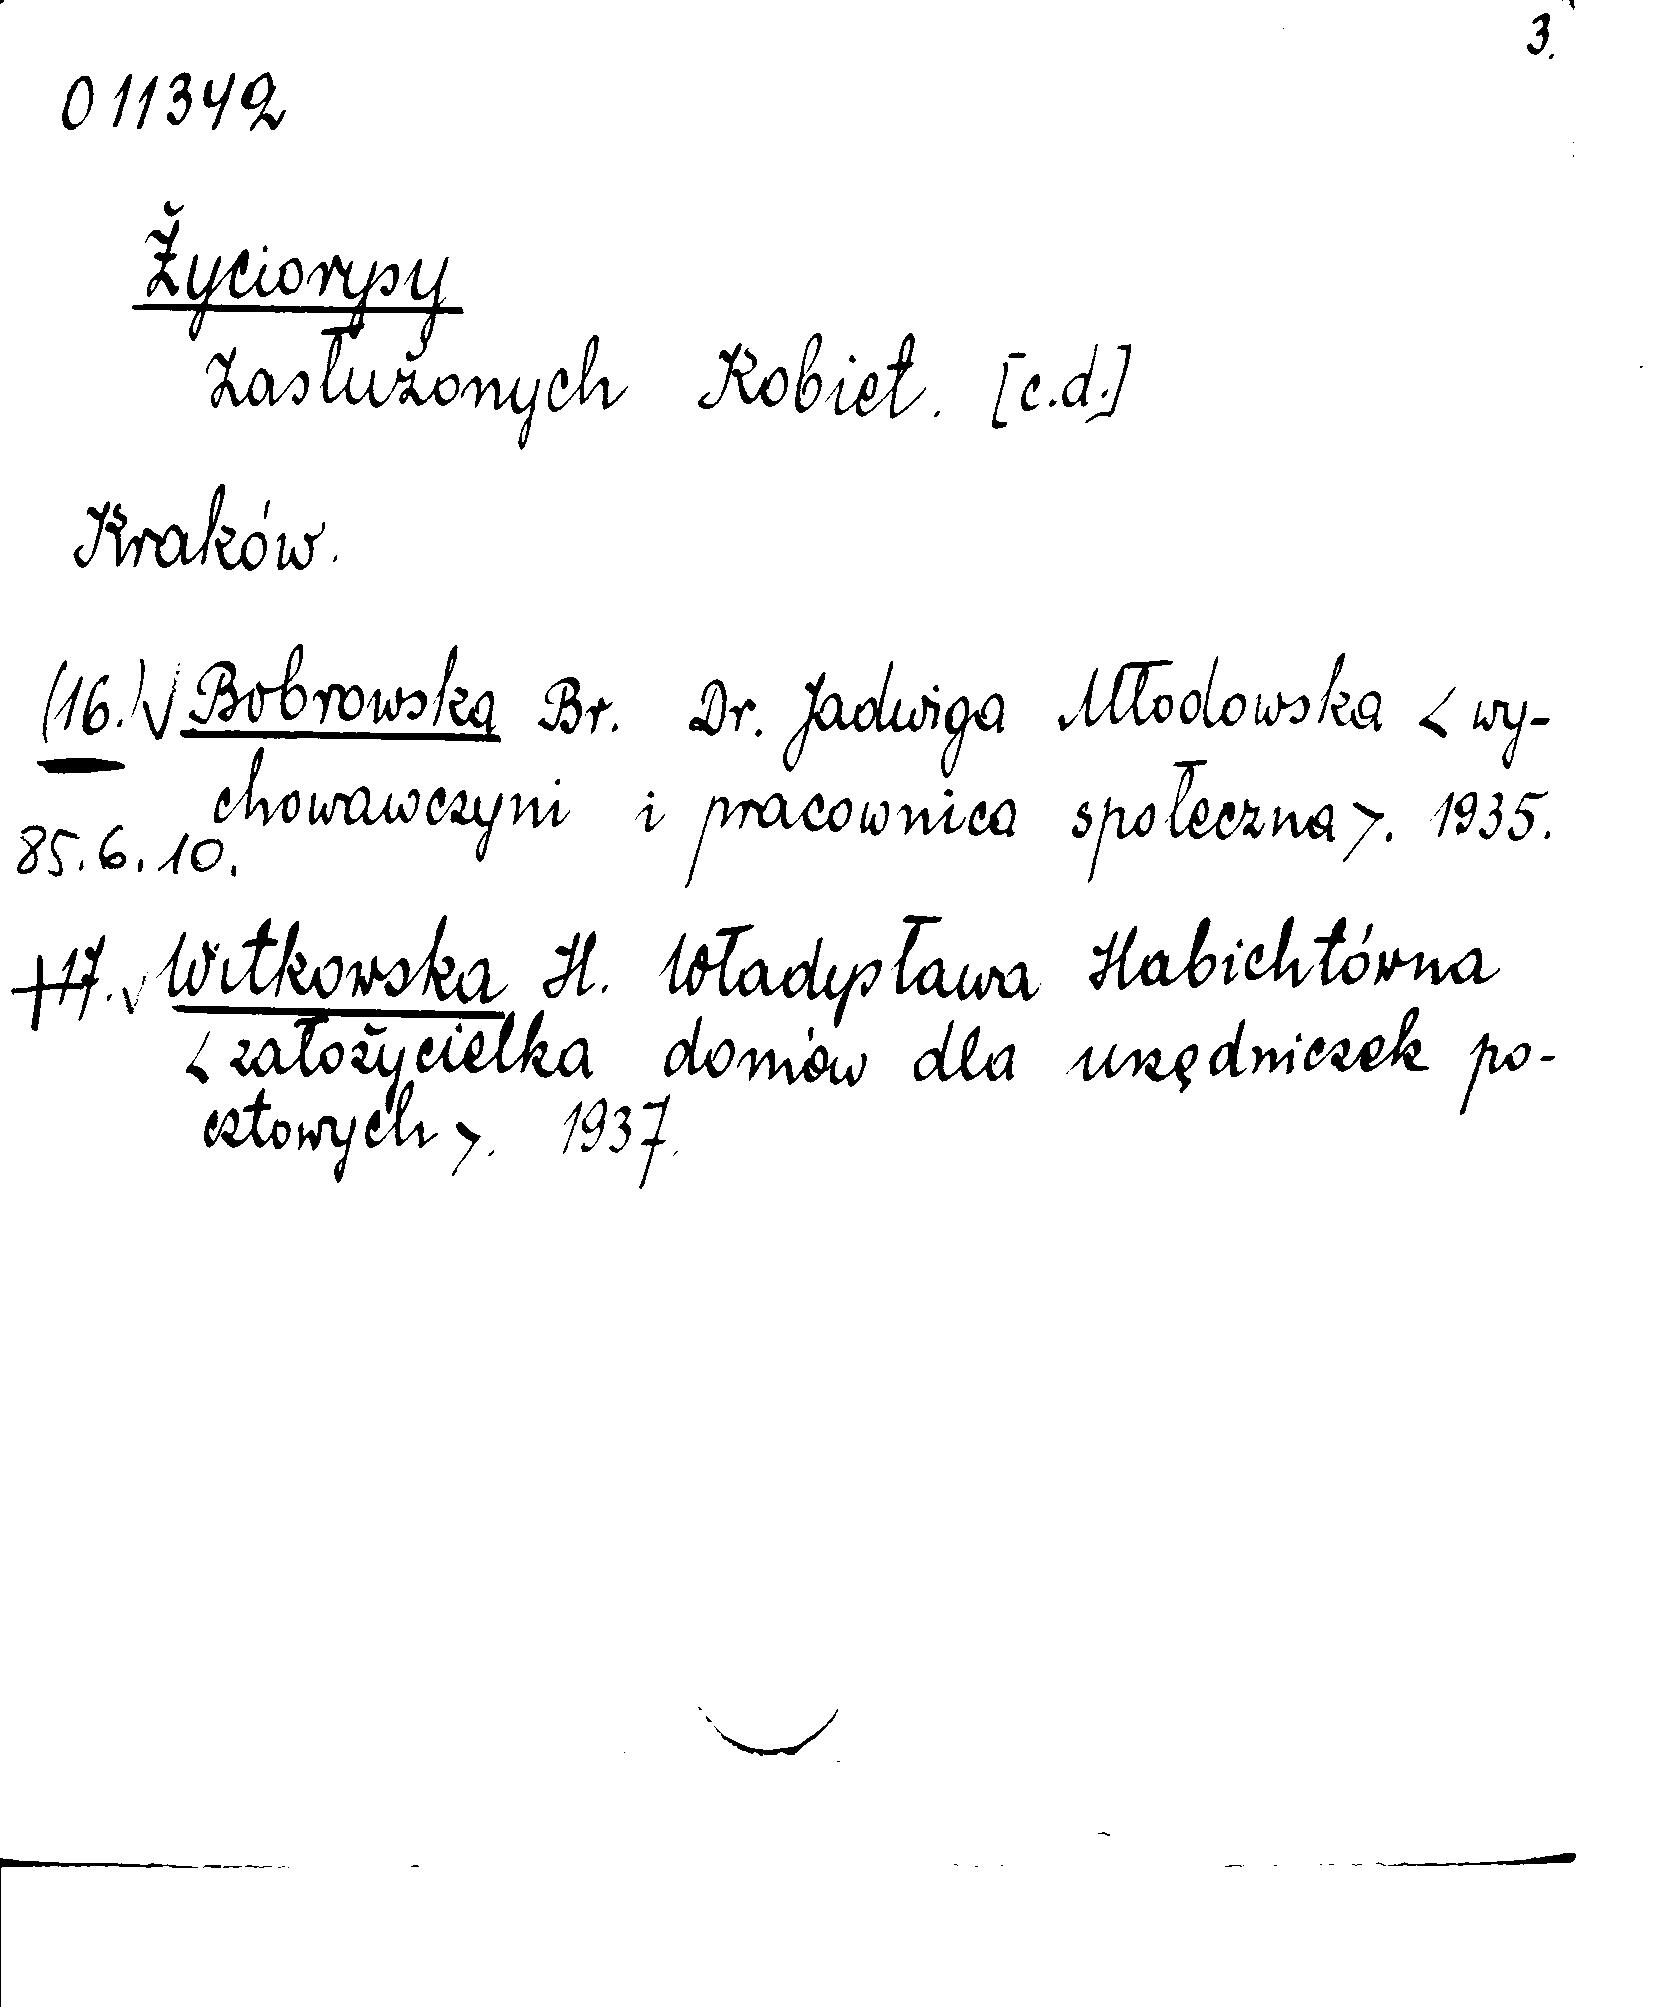 3.
011342
Życiorysy
Zasłużonych Kobiet. [c.d.]
Kraków.
(16.) √ Bobrowska Br. Dr. Jadwiga Młodowska < wy-
chowawczyni i pracownica społeczna >. 1935.
85.6.10.
+17. √ Witkowska H. Władysława Habichtówna
< założycielka domów dla urzędniczek po-
cztowych >. 1937.